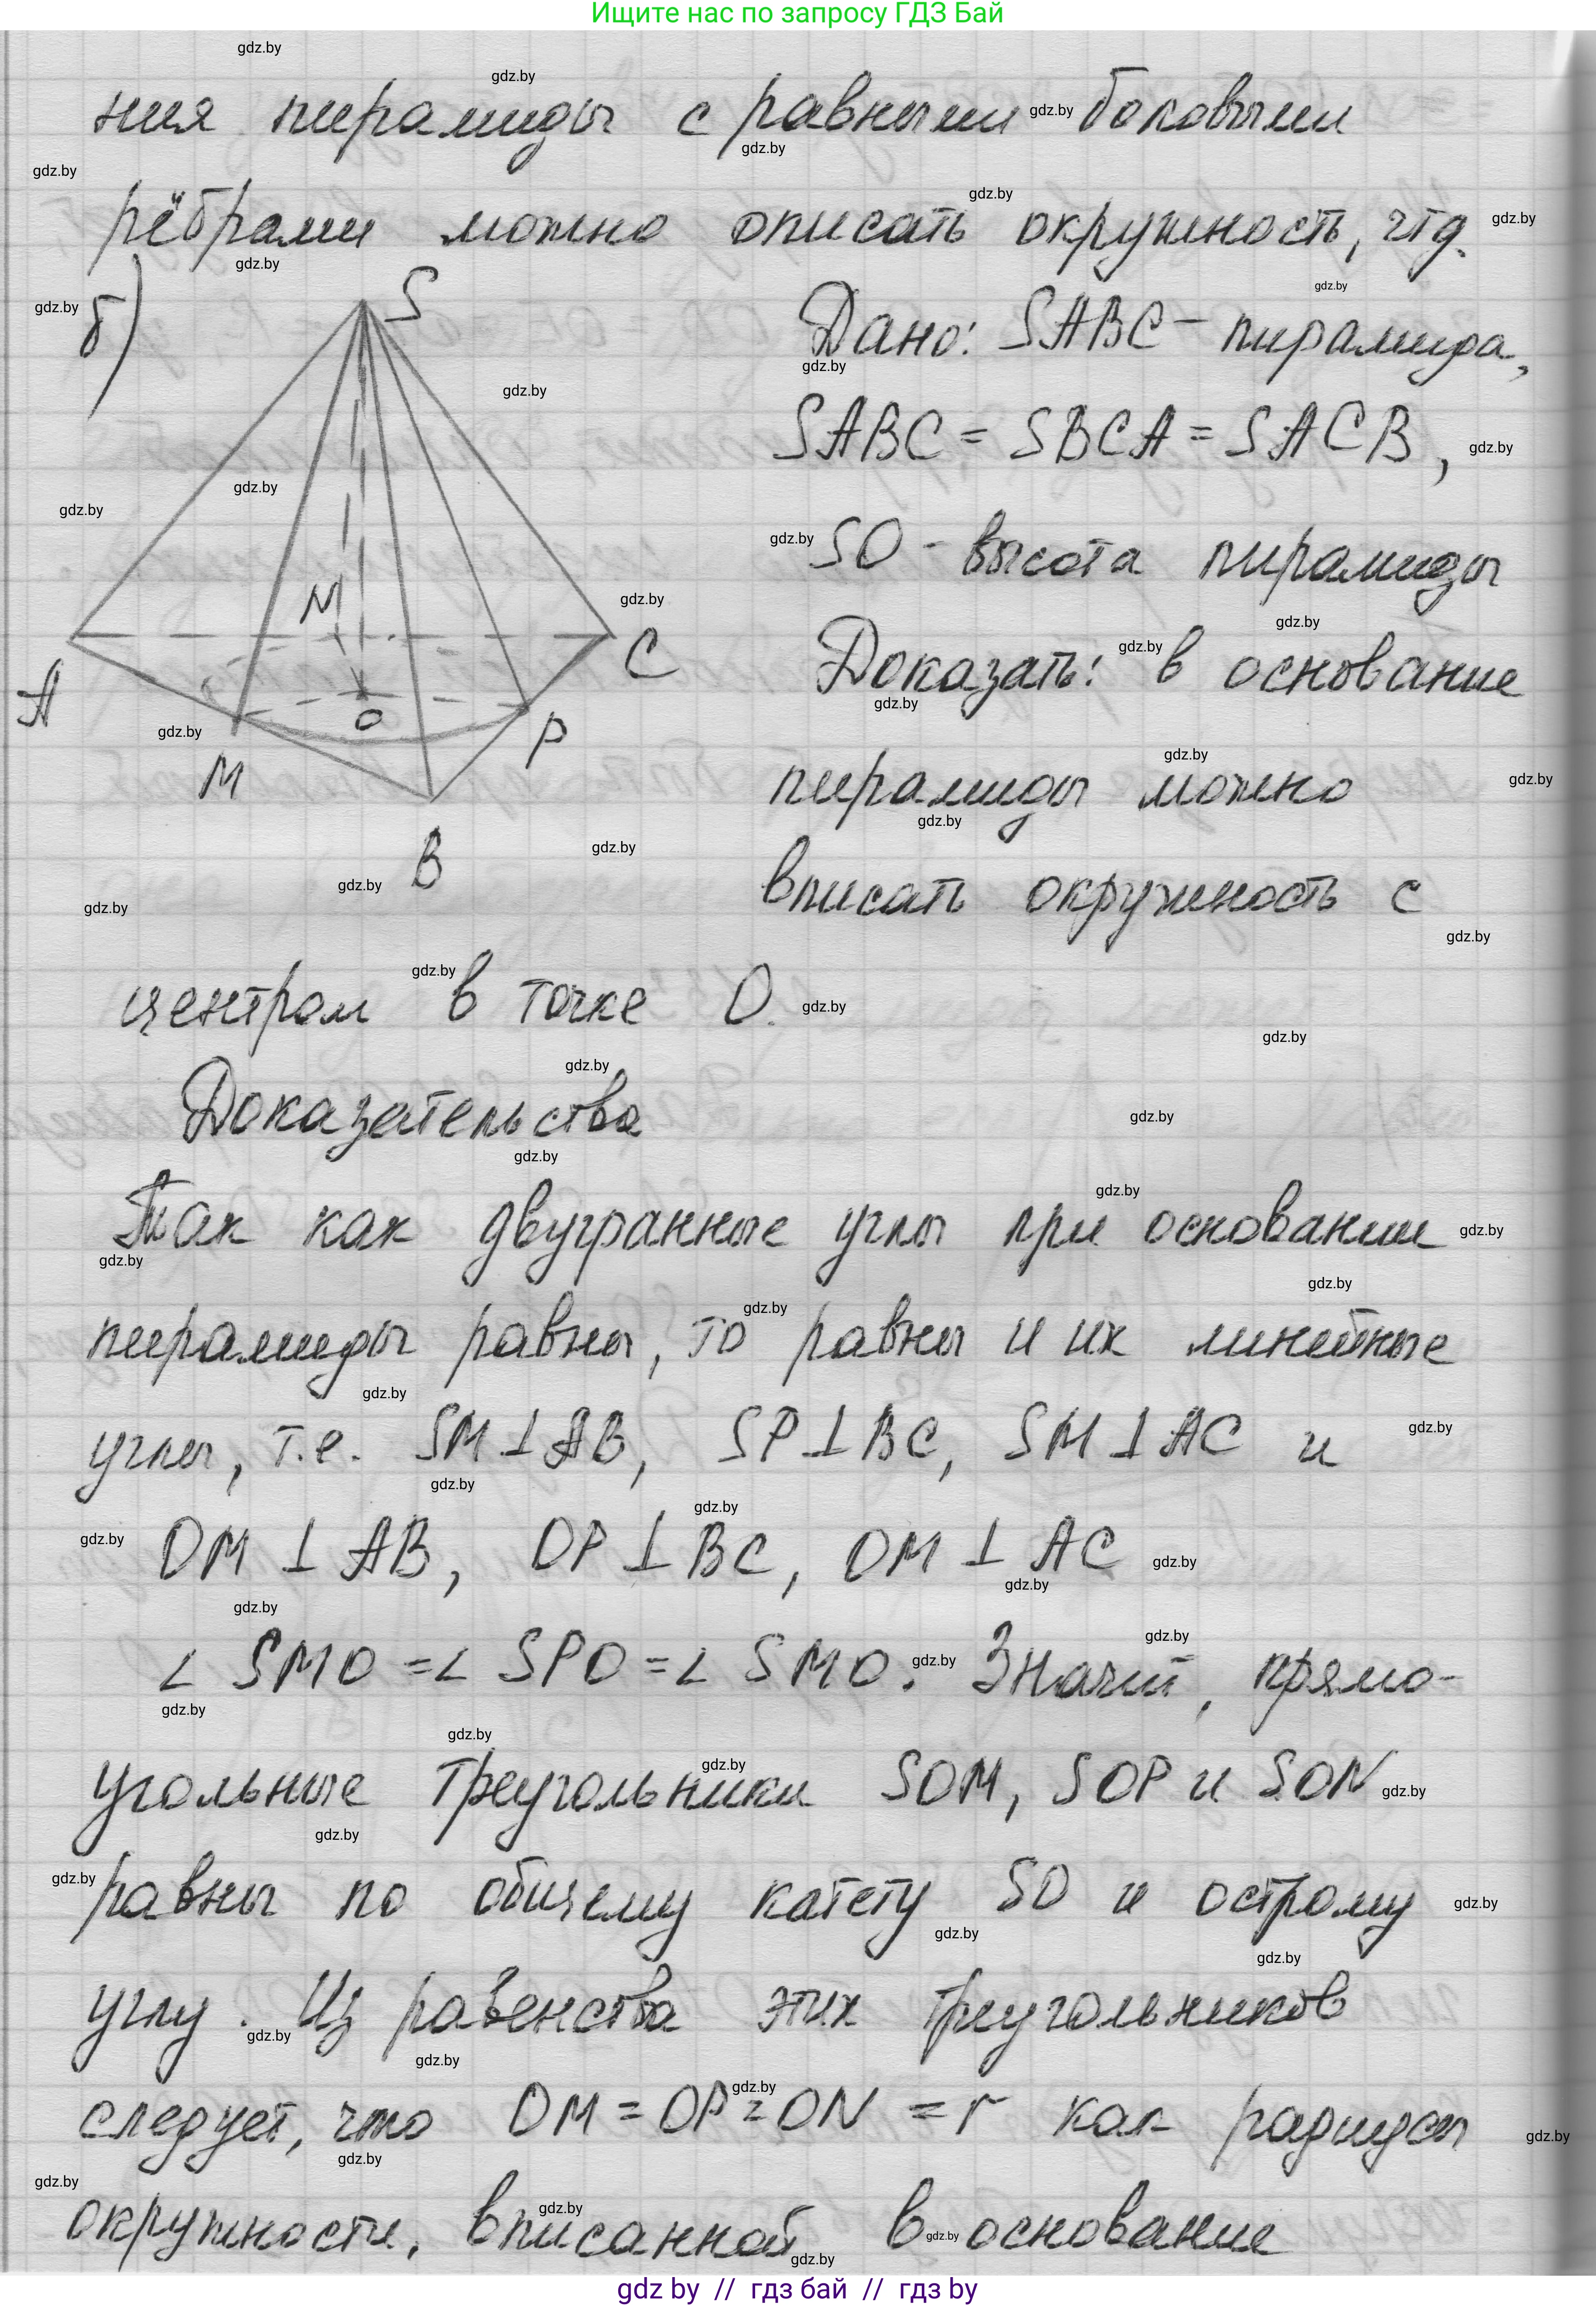 Ищите нас по запросу ГДЗ Бай
ния пирамиды с равными боковыми
рёбрами можно описать окружность, чтд.
б)
S
A
M
N
O
P
C
B
Дано: SABC – пирамида,
SABC = SBCA = SACB,
SO - высота пирамиды
Доказать: в основание
пирамиды можно
вписать окружность с
центром в точке O.
Доказательство
Так как двугранные углы при основании
пирамиды равны, то равны и их линейные
углы, т.е. SM⊥AB, SP⊥BC, SM⊥AC и
OM ⊥ AB, OP⊥BC, OM ⊥ AC
∠ SMO =∠ SPO =∠ SMO. Значит, прямо-
угольные треугольники SOM, SOP и SON
равны по общему катету SO и острому
углу. Из равенства этих треугольников
следует, что OM = OP = ON = r как радиусы
окружности, вписанной в основание
gdz by // гдз бай // гдз by